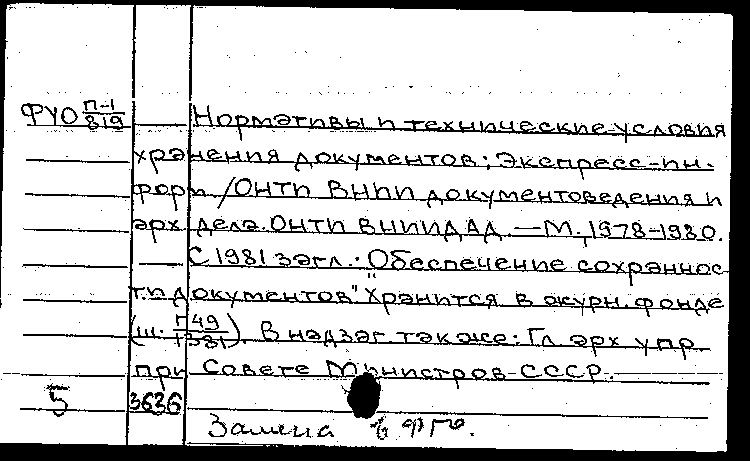 ФУО П-1/819 Нормативы и технические условия
хранения документов: Экспресс-ин-
форм /ОНТИ ВНИИ документоведения и
арх дела. ОНТИ ВНИИДАД. — М., 1978-1980.
С 1981 загл.: "Обеспечение сохраннос-
ти документов". Хранится в журн. фонде
(ш. Г49/1381). В надзаг. также: Гл арх упр
при Совете Министров СССР.
5 3636
Замена в